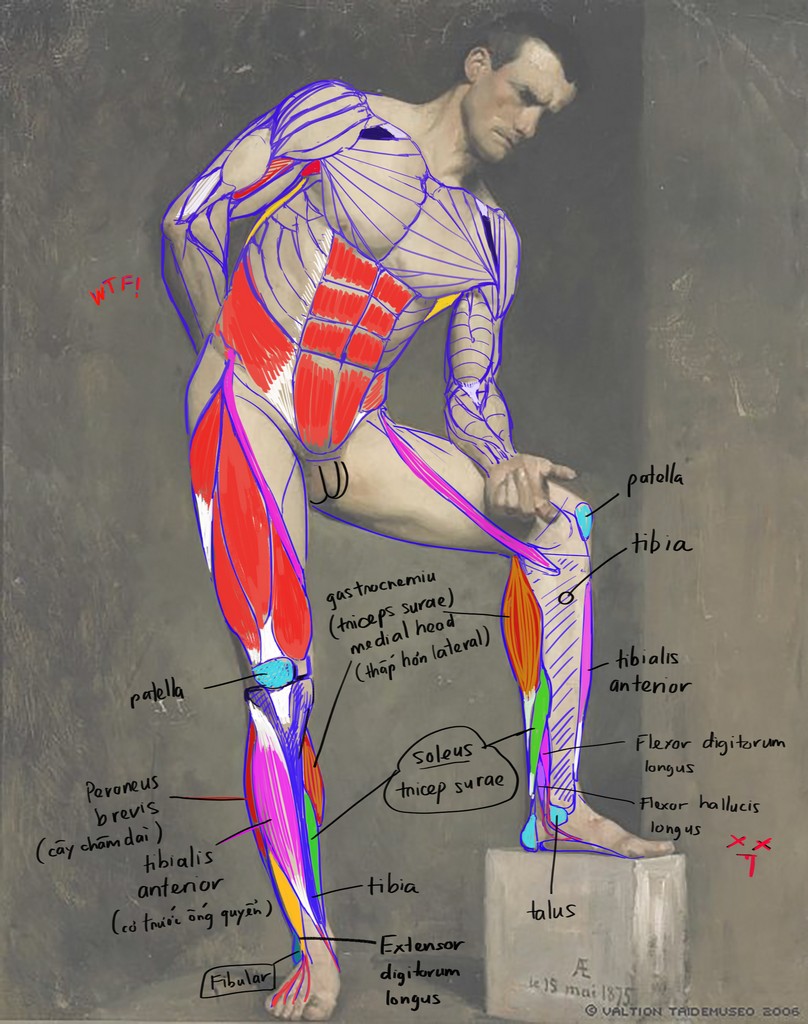 WTF!
patella
tibia
gastrocnemiu
(triceps surae)
medial head
(thấp hơn lateral)
tibialis
anterior
patella
soleus
tricep surae
Flexor digitorum
longus
Flexor hallucis
longus
Peroneus
brevis
(cây chầm dài)
tibialis
anterior
(cơ trước ống quyển)
tibia
talus
Extensor
digitorum
longus
Fibular
Æ
le 15 mai 1875
© VALTION TAIDEMUSEO 2006